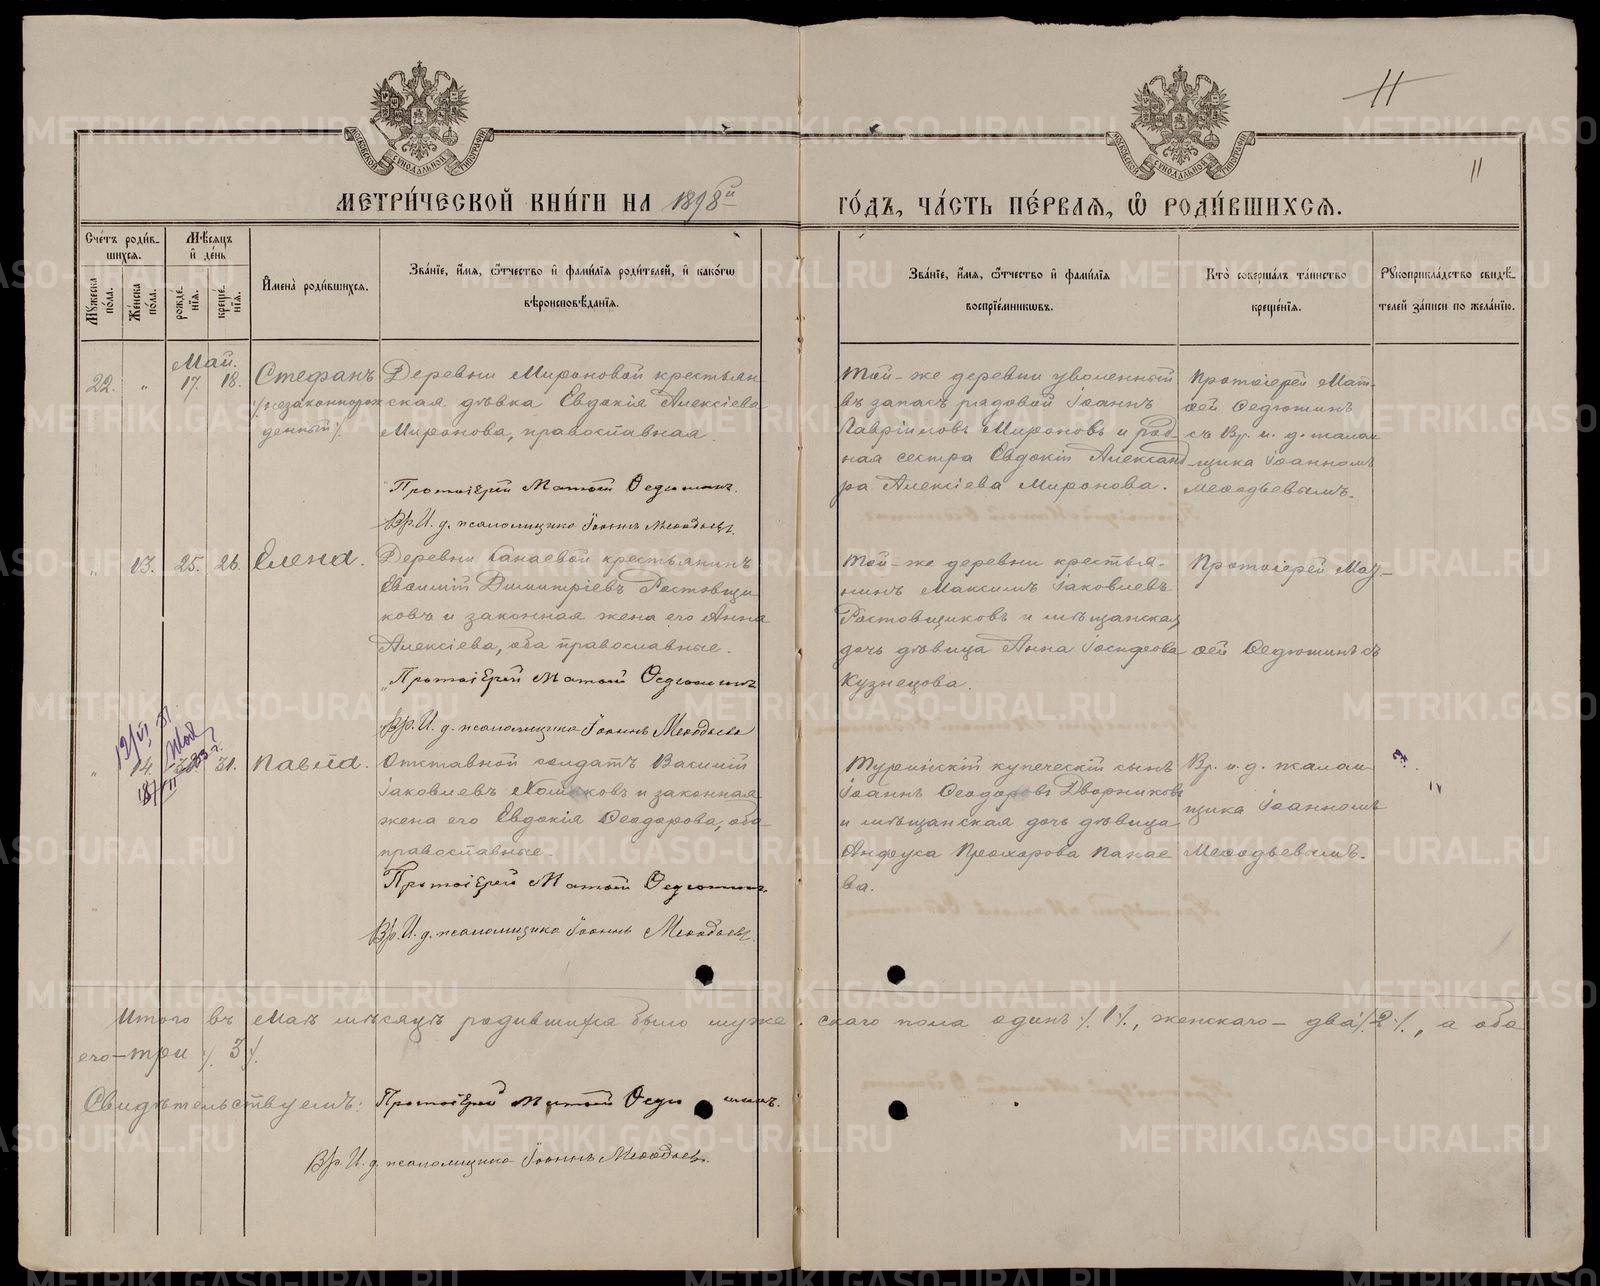 11
11
МЕТРИ́ЧЕСКОЙ КНИ́ГИ НА 1898й
ГО́ДЪ, ЧА́СТЬ ПЕ́РВАЯ, Ѿ РОДИ́ВШИХСЯ.
Сче́тъ роди́в-
шихся.
Мѣ́сяцъ
и де́нь
Му́жеска
пола.
Же́нска
пола.
рожде-
нїя.
креще-
нїя.
И҆мена̀ роди́вшихся.
Зва́нїе, и҆́мя, ѻ҆́тчество и҆ фами́лїя роди́телей, и҆ како́гѡ
вѣроисповѣ́данїя.
Зва́нїе, и҆́мя, ѻ҆́тчество и҆ фами́лїя
воспрїе́мникѡвъ.
Кто̀ соверша́лъ та́инство
креще́нїя.
Рꙋкоприкла́дство свидѣ́-
телей за́писи по жела́нїю.
Май.
22. „ 17. 18.
Стефанъ
/:незаконнорож
денный:/.
Деревни Мироновой крестьян
ская дѣвка Евдокія Алексіева
Миронова, православная.
Протоіерей Матѳій Ѳедюшинъ.
Вр. И. д. псаломщика Іоаннъ Меѳодьевъ.
Той-же деревни уволенный
въ запасъ рядовой Іоаннъ
Гавріиловъ Мироновъ и род-
ная сестра Евдокіи Александ-
ра Алексіева Миронова.
Протоіерей Мат-
ѳей Ѳедюшинъ
съ Вр. и. д. псалом
щика Іоанномъ
Меѳодьевымъ.
„ 13. 25. 26.
Елена.
Деревни Канаевой крестьянинъ
Евѳимій Димитріевъ Ростовщи-
ковъ и законная жена его Анна
Алексіева, оба православные.
Протоіерей Матѳій Ѳедюшинъ
Вр. И. д. псаломщика Іоаннъ Меѳодьевъ
Той-же деревни крестья-
нинъ Максимъ Іаковлевъ
Ростовщиковъ и мѣщанская
дочь дѣвица Анна Іосифова
Кузнецова.
Протоіерей Мат-
ѳей Ѳедюшинъ
„ 14. 31.
Павла.
Отставной солдатъ Василій
жена его Евдокія Ѳеодорова, оба
православные.
Протоіерей Матѳій Ѳедюшинъ.
Вр. И. д. псаломщика Іоаннъ Меѳодьевъ.
Туринскій купеческій сынъ
Іоаннъ Ѳеодоровъ Дворниковъ
и мѣщанская дочь дѣвица
Анфуса Прохорова Панае
ва.
Вр. и. д. псалом
щика Іоанномъ
Меѳодьевымъ.
Итого въ Маѣ мѣсяцѣ родившихся было муже
скаго пола одинъ /.1/., женскаго – два /.2/., а оба
его – три /. 3 /.
Свидѣтельствуемъ: Протоіерей Матѳій Ѳедюшинъ.
Вр. И. д. псаломщика Іоаннъ Меѳодьевъ.
METRIKI.GASO-URAL.RU